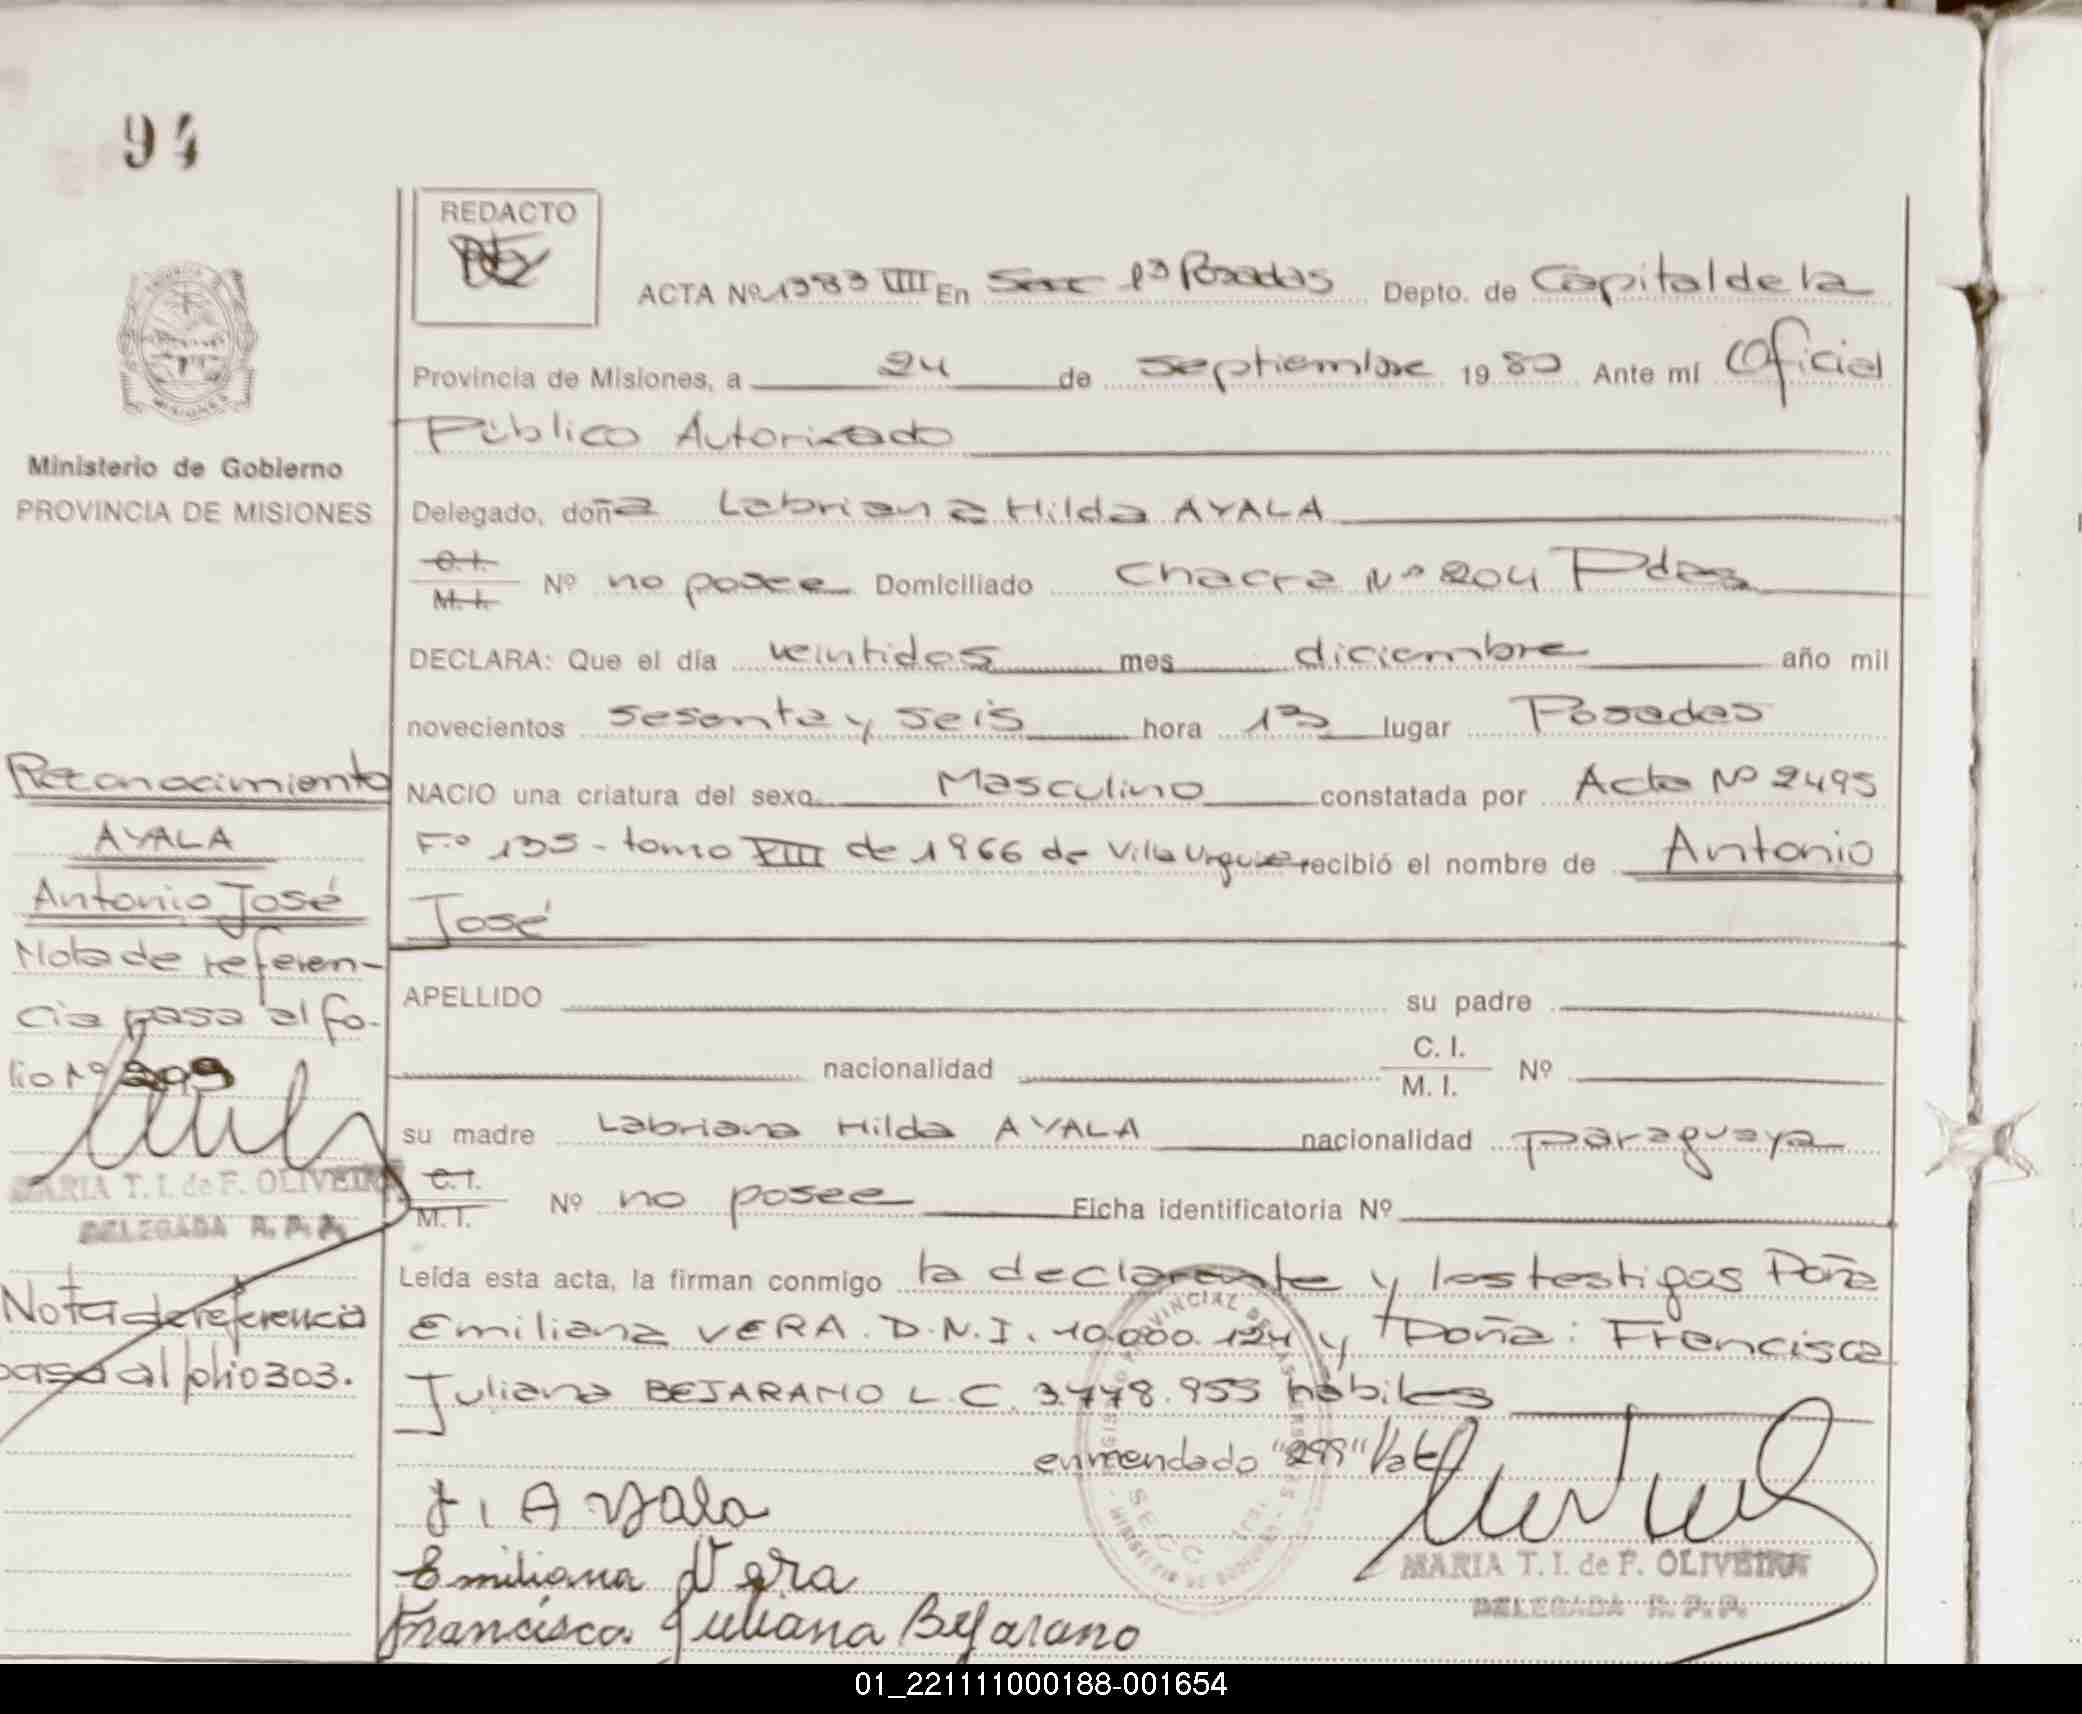 94
REDACTO
ACTA Nº 1383 VIII En Secc 1ª Posadas Depto. de Capital de la
Provincia de Misiones, a 24 de septiembre 1980 Ante mí Oficial
Público Autorizado
Ministerio de Gobierno
PROVINCIA DE MISIONES
Delegado, doña Labriana Hilda AYALA
C. I.
M. I. Nº no posee Domiciliado Chacra Nº 204 Pdas
DECLARA: Que el día veintidos mes diciembre año mil
novecientos sesenta y seis hora 13 lugar Posadas
NACIO una criatura del sexo Masculino constatada por Acta Nº 2495
Fº 135 - tomo XIII de 1966 de Villa Urquiza recibió el nombre de Antonio
José
APELLIDO su padre
nacionalidad C. I.
M. I. Nº
su madre Labriana Hilda AYALA nacionalidad paraguaya
C. I.
M. I. Nº no posee Ficha identificatoria Nº
Leída esta acta, la firman conmigo la declarante y los testigos Doña
Emiliana VERA. D.N.I. 10.000.124 y Doña: Francisca
Juliana BEJARANO L.C. 3.778.955 hábiles
enmendado "299" Vale
Reconocimiento
AYALA
Antonio José
Nota de referen-
cia pasa al fo-
lio Nº 299
MARIA T. I. de F. OLIVEIRA
DELEGADA R. P. P.
Nota de referencia
pasa al folio 303.
H. AYala
Emiliana Vera
Francisca Juliana Bejarano
REGISTRO PROVINCIAL DE LAS PERSONAS
MARIA T. I. de F. OLIVEIRA
DELEGADA R. P. P.
01_221111000188-001654